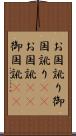 お国訛り御
国訛り
お国訛
御国訛